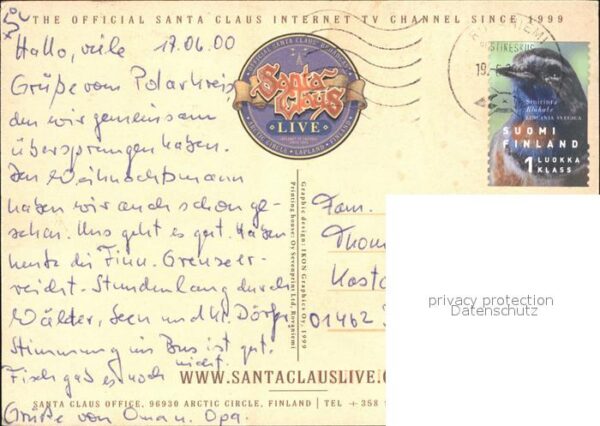 THE OFFICIAL SANTA CLAUS INTERNET TV CHANNEL SINCE 1999
Hallo, viele 17.06.00
Grüße vom Polarkreis
den wir gemeinsam
übersprungen haben.
Den Weihnachtsmann
haben wir auch schon ge-
sehen. Uns geht es gut. Haben
heute die Finn. Grenze er-
reicht. Stundenlang durch
Wälder, Seen und kl. Dörfer
Stimmung im Bus ist gut.
Fisch gab es noch nicht.
Grüße von Oma u. Opa.
OFFICIAL SANTA CLAUS BROADCAST
Santa
Claus
LIVE
ARCTIC CIRCLE LAPLAND FINLAND
POSTIKESKUS
19.
Sinirinta
Blåhake
SUOMI
FINLAND
1 LUOKKA
KLASS
Graphic design: IKON Graphics Oy, 1999
Printing house: Oy Sevenprint Ltd,
Fam.
Thom
Kasta
01462
privacy protection
Datenschutz
WWW.SANTACLAUSLIVE.
SANTA CLAUS OFFICE, 96930 ARCTIC CIRCLE, FINLAND | TEL + 358